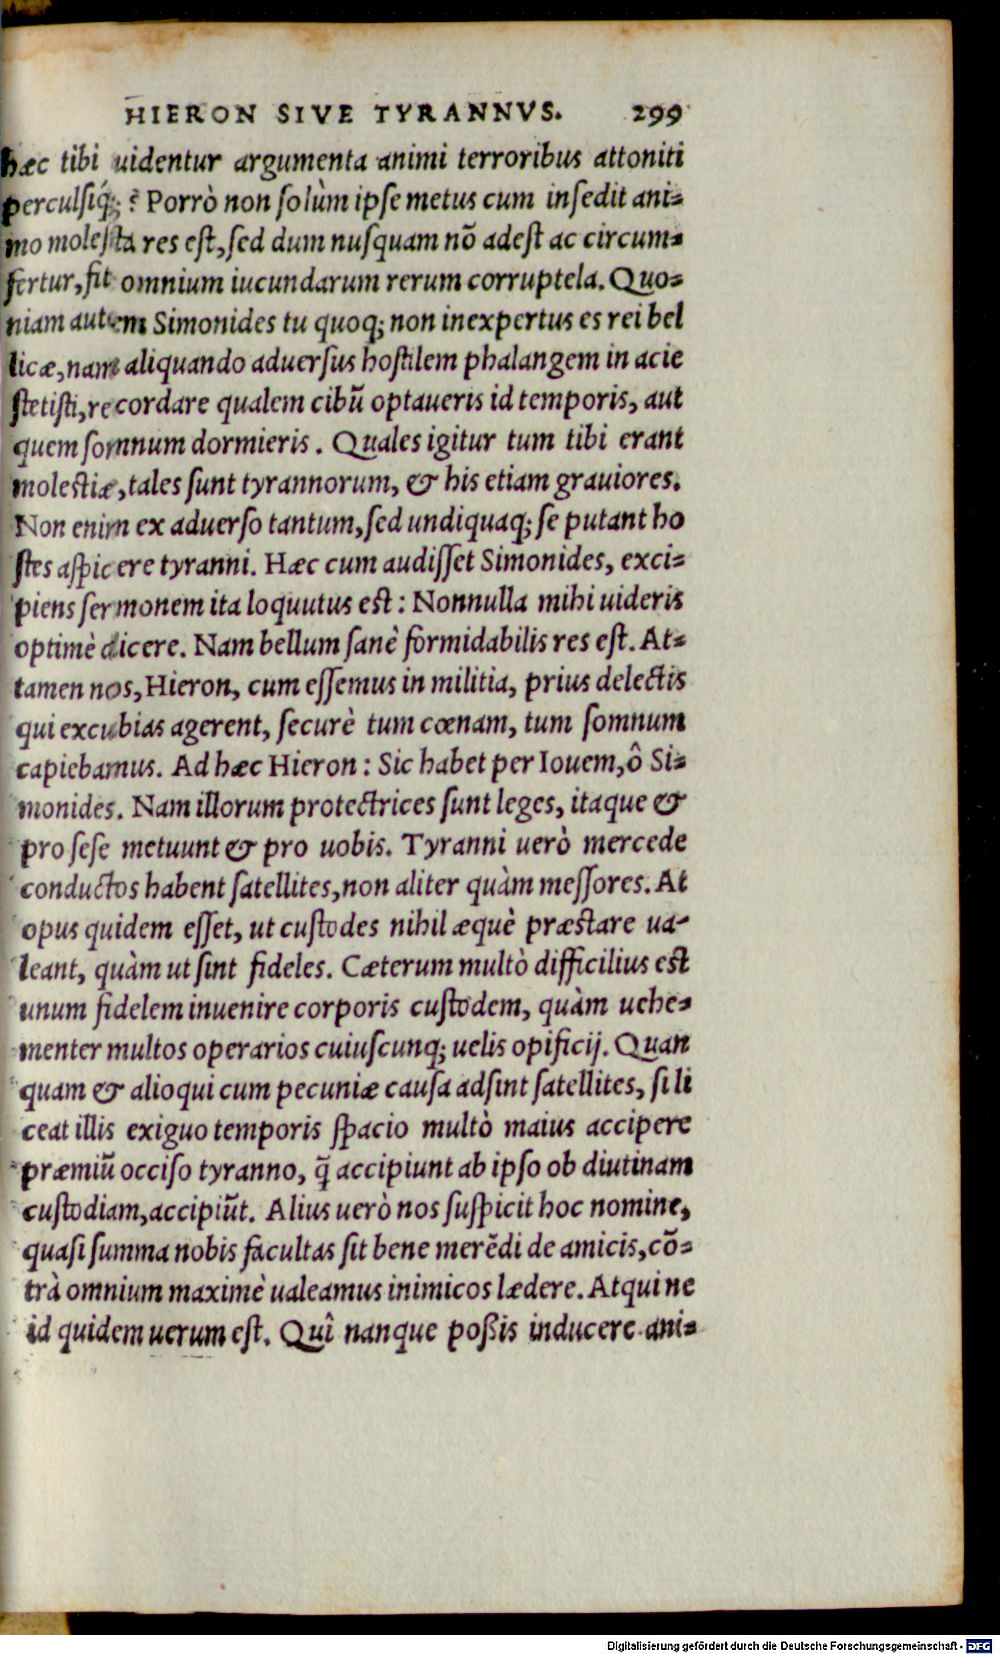 HIERON SIVE TYRANNVS. 299
hæc tibi uidentur argumenta animi terroribus attoniti
perculsiq́;? Porrò non solùm ipse metus cum insedit ani=
mo molesta res est, sed dum nusquam nõ adest ac circum=
fertur, fit omnium iucundarum rerum corruptela. Quo=
niam autem Simonides tu quoq; non inexpertus es rei bel
licæ, nam aliquando aduersus hostilem phalangem in acie
stetisti, recordare qualem cibũ optaueris id temporis, aut
quem somnum dormieris. Quales igitur tum tibi erant
molestiæ, tales sunt tyrannorum, & his etiam grauiores.
Non enim ex aduerso tantum, sed undiquaq; se putant ho
stes aspicere tyranni. Hæc cum audisset Simonides, exci=
piens sermonem ita loquutus est: Nonnulla mihi uideris
optimè dicere. Nam bellum sanè formidabilis res est. At=
tamen nos, Hieron, cum essemus in militia, prius delectis
qui excubias agerent, securè tum cœnam, tum somnum
capiebamus. Ad hæc Hieron: Sic habet per Iouem, ô Si=
monides. Nam illorum protectrices sunt leges, itaque &
pro sese metuunt & pro uobis. Tyranni uerò mercede
conductos habent satellites, non aliter quàm messores. At
opus quidem esset, ut custodes nihil æquè præstare ua-
leant, quàm ut sint fideles. Cæterum multò difficilius est
unum fidelem inuenire corporis custodem, quàm uehe=
menter multos operarios cuiuscunq; uelis opificij. Quan
quam & alioqui cum pecuniæ causa adsint satellites, si li
ceat illis exiguo temporis spacio multò maius accipere
præmiũ occiso tyranno, q̃ accipiunt ab ipso ob diutinam
custodiam, accipiũt. Alius uerò nos suspicit hoc nomine,
quasi summa nobis facultas sit bene merẽdi de amicis, cõ=
trà omnium maximè ualeamus inimicos lædere. Atqui ne
id quidem uerum est. Quî nanque poßis inducere ani=
Digitalisierung gefördert durch die Deutsche Forschungsgemeinschaft - DFG